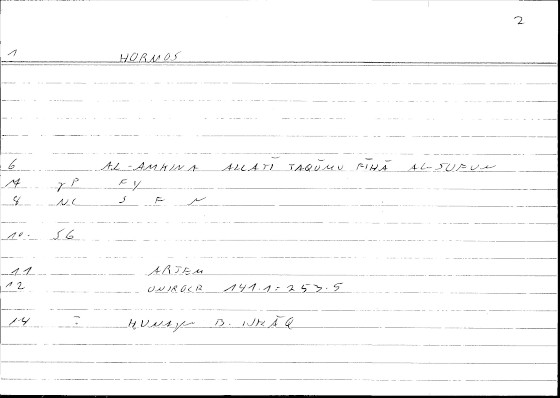 2
1 HORMOS
6 AL-AMKINA ALLATĪ TAQŪMU FĪHĀ AL-SUFUN
7 γP FY
8 NC S F N
10. 56
11 ARTEM
12 ONIROCR 141.1 = 253.5
14 : HUNAYN B. ISḤĀQ